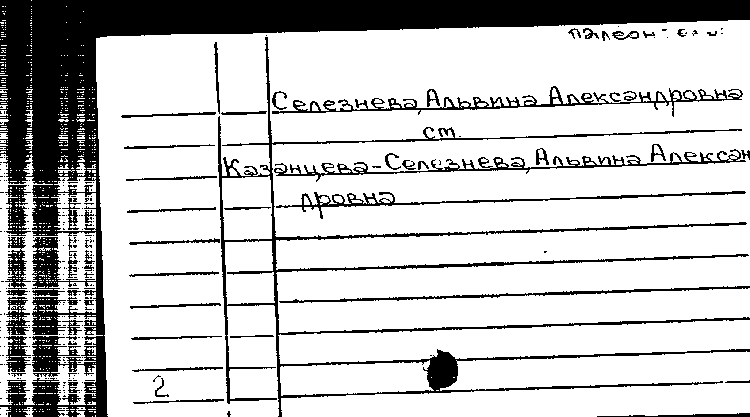 палеон.
Селезнева, Альвина Александровна
ст.
Казанцева-Селезнева, Альвина Алексан
дровна
2